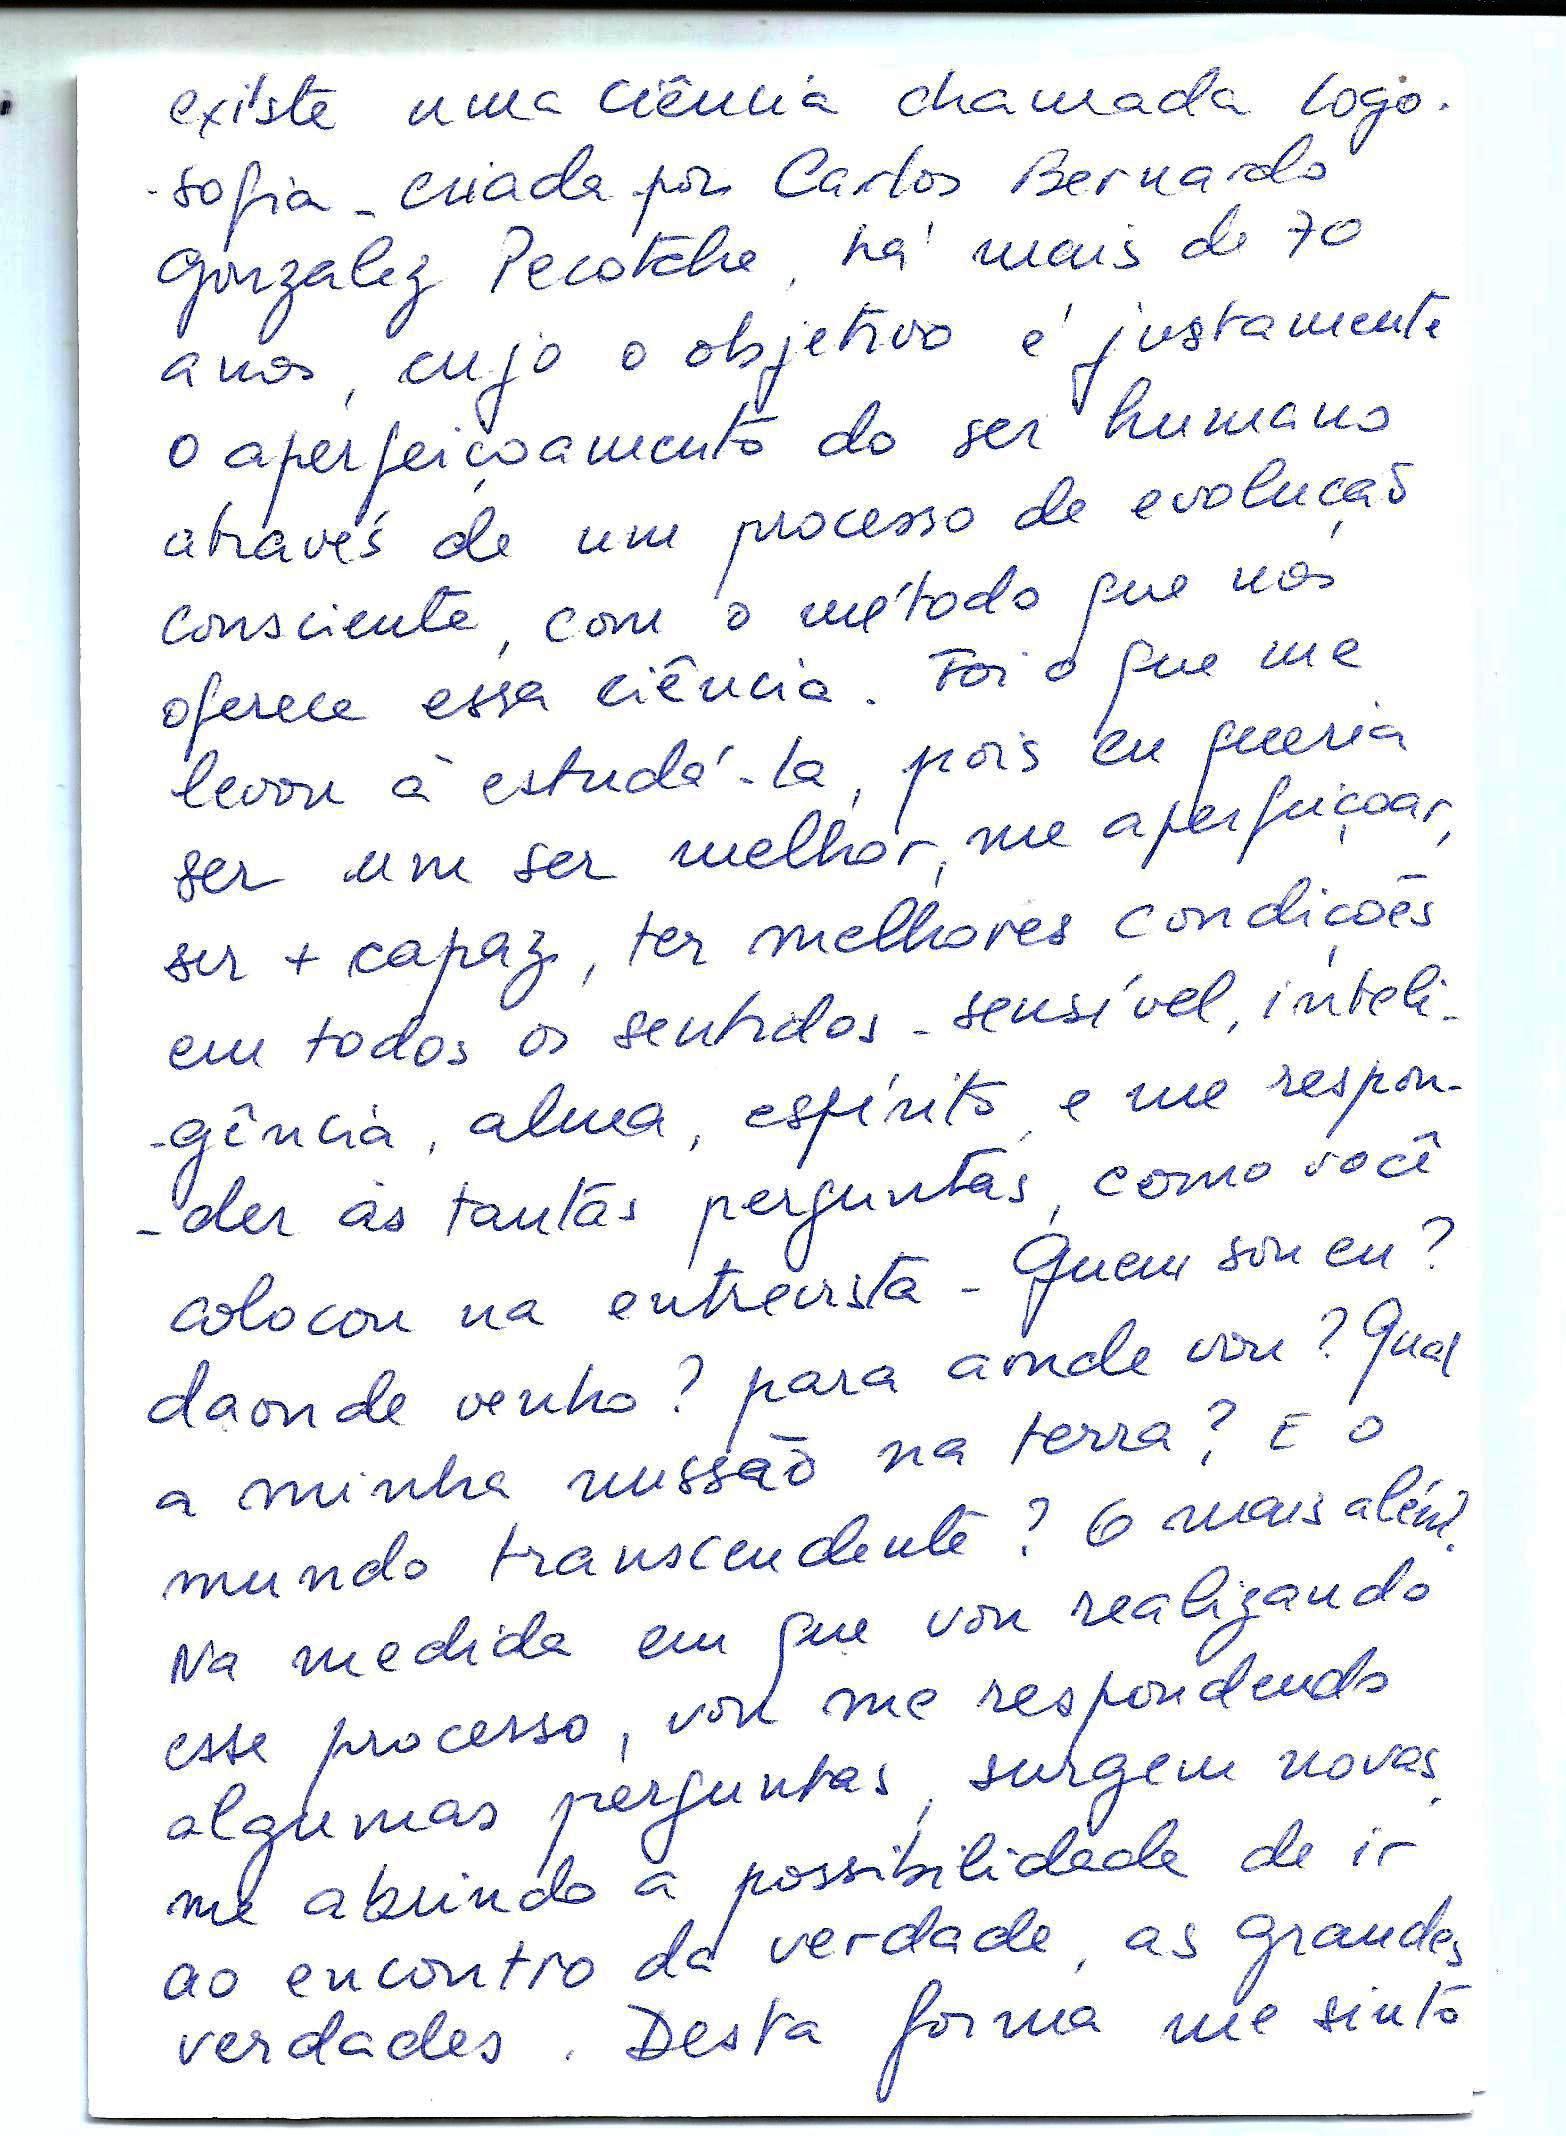 existe uma ciência chamada logo-
-sofia - criada por Carlos Bernardo
Gonzalez Pecotche, há mais de 70
anos, cujo o objetivo é justamente
o aperfeiçoamento do ser humano
através de um processo de evolução
consciente, com o método que nos
oferece essa ciência. Foi o que me
levou à estudá-la, pois eu queria
ser um ser melhor, me aperfeiçoar,
ser + capaz, ter melhores condições
em todos os sentidos - sensível, inteli-
-gência, alma, espírito, e me respon-
-der às tantas perguntas, como você
colocou na entrevista - Quem sou eu?
daonde venho? para aonde vou? Qual
a minha missão na terra? E o
mundo transcendente? O mais além?
Na medida em que vou realizando
esse processo, vou me respondendo
algumas perguntas, surgem novas,
me abrindo a possibilidade de ir
ao encontro da verdade, as grandes
verdades. Desta forma me sinto